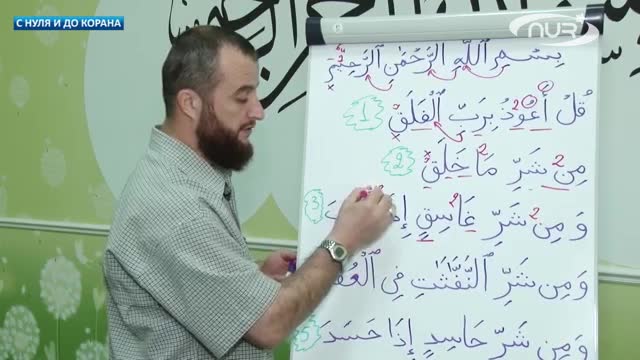 С НУЛЯ И ДО КОРАНА
NUR TV
بِسْمِ اللَّهِ الرَّحْمَٰنِ الرَّحِيمِ
قُلْ أَعُوذُ بِرَبِّ الْفَلَقِ 1
مِن شَرِّ مَا خَلَقَ 2
وَمِن شَرِّ غَاسِقٍ 3
وَمِن شَرِّ النَّفَّٰثَٰتِ فِي
وَمِن شَرِّ حَاسِدٍ إِذَا حَسَدَ 5